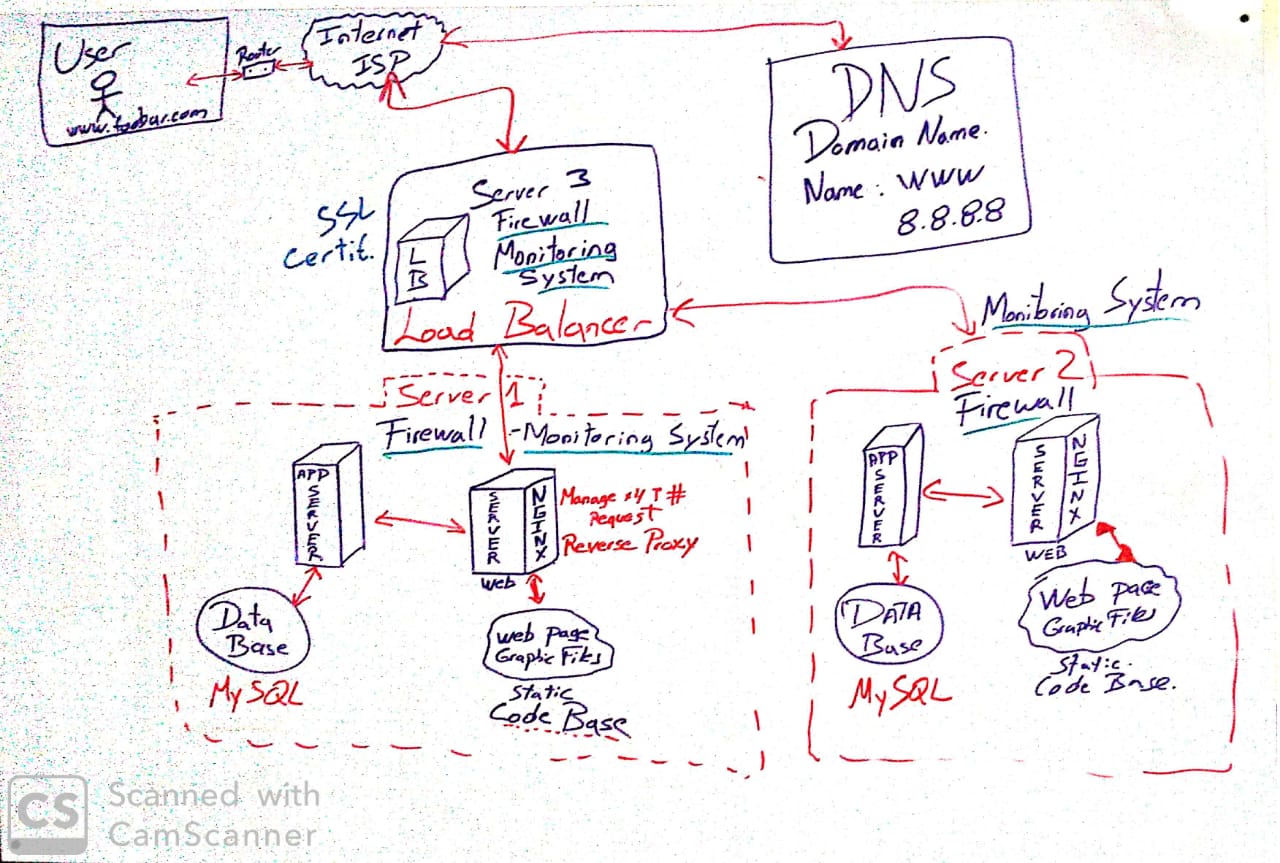 User
www.foobar.com
Router
Internet
ISP
DNS
Domain Name.
Name: WWW
8.8.8.8
SSL
Certif.
Server 3
Firewall
Monitoring
System
L
B
Load Balancer
Monitoring System
Server 1
Firewall - Monitoring System
APP
SERVER
SERVER
NGINX
Web
Manage
Request
Reverse Proxy
Data
Base
MySQL
Web Page
Graphic Files
Static
Code Base
Server 2
Firewall
APP
SERVER
SERVER
NGINX
WEB
DATA
Base
MySQL
Web Page
Graphic Files
Static.
Code Base.
CS
Scanned with
CamScanner